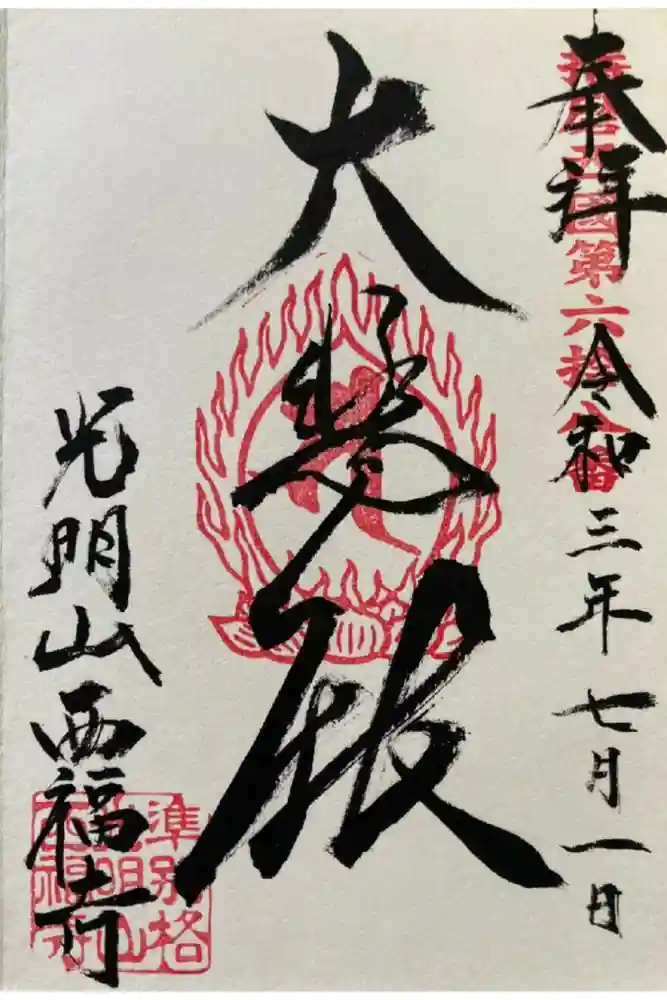 奉拝
令和三年七月一日
國第六拾
大
光明山西福寺
準別格
光明山
西福寺